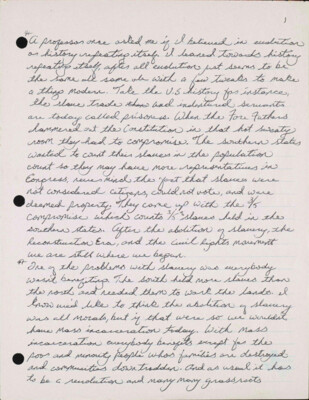 1
A professor once asked me if I believed in evolution
or history repeating itself. I leaned towards history
repeating itself, after all evolution just seems to be
the same old same ole with a few tweaks to make
a things modern. Take the U.S history for instance,
the slave trade and indentured servants
are today called prisoners. When the Fore Fathers
hammered out the Constitution in that hot sweaty
room they had to compromise. The southern States
wanted to count their slaves in the population
count so they may have more representatives in
Congress, never mind the fact that slaves were
not considered citizens, could not vote, and were
deemed property. They came up with the 3/5
compromise which counts 3/5 slaves held in the
southern states. After the abolition of slavery, the
Reconstruction Era, and the civil rights movement
we are still where we began.
One of the problems with slavery was everybody
wasn't benefiting. The South held more slaves than
the north and needed them to work the lands. I
know we'd like to think the abolition of slavery
was all morals, but if that were so we wouldn't
have mass incarceration today. With mass
incarceration everybody benefits except for the
poor and minority people whos families are destroyed
and communities downtrodden. And as usual it has
to be a revolution and many many grassroots